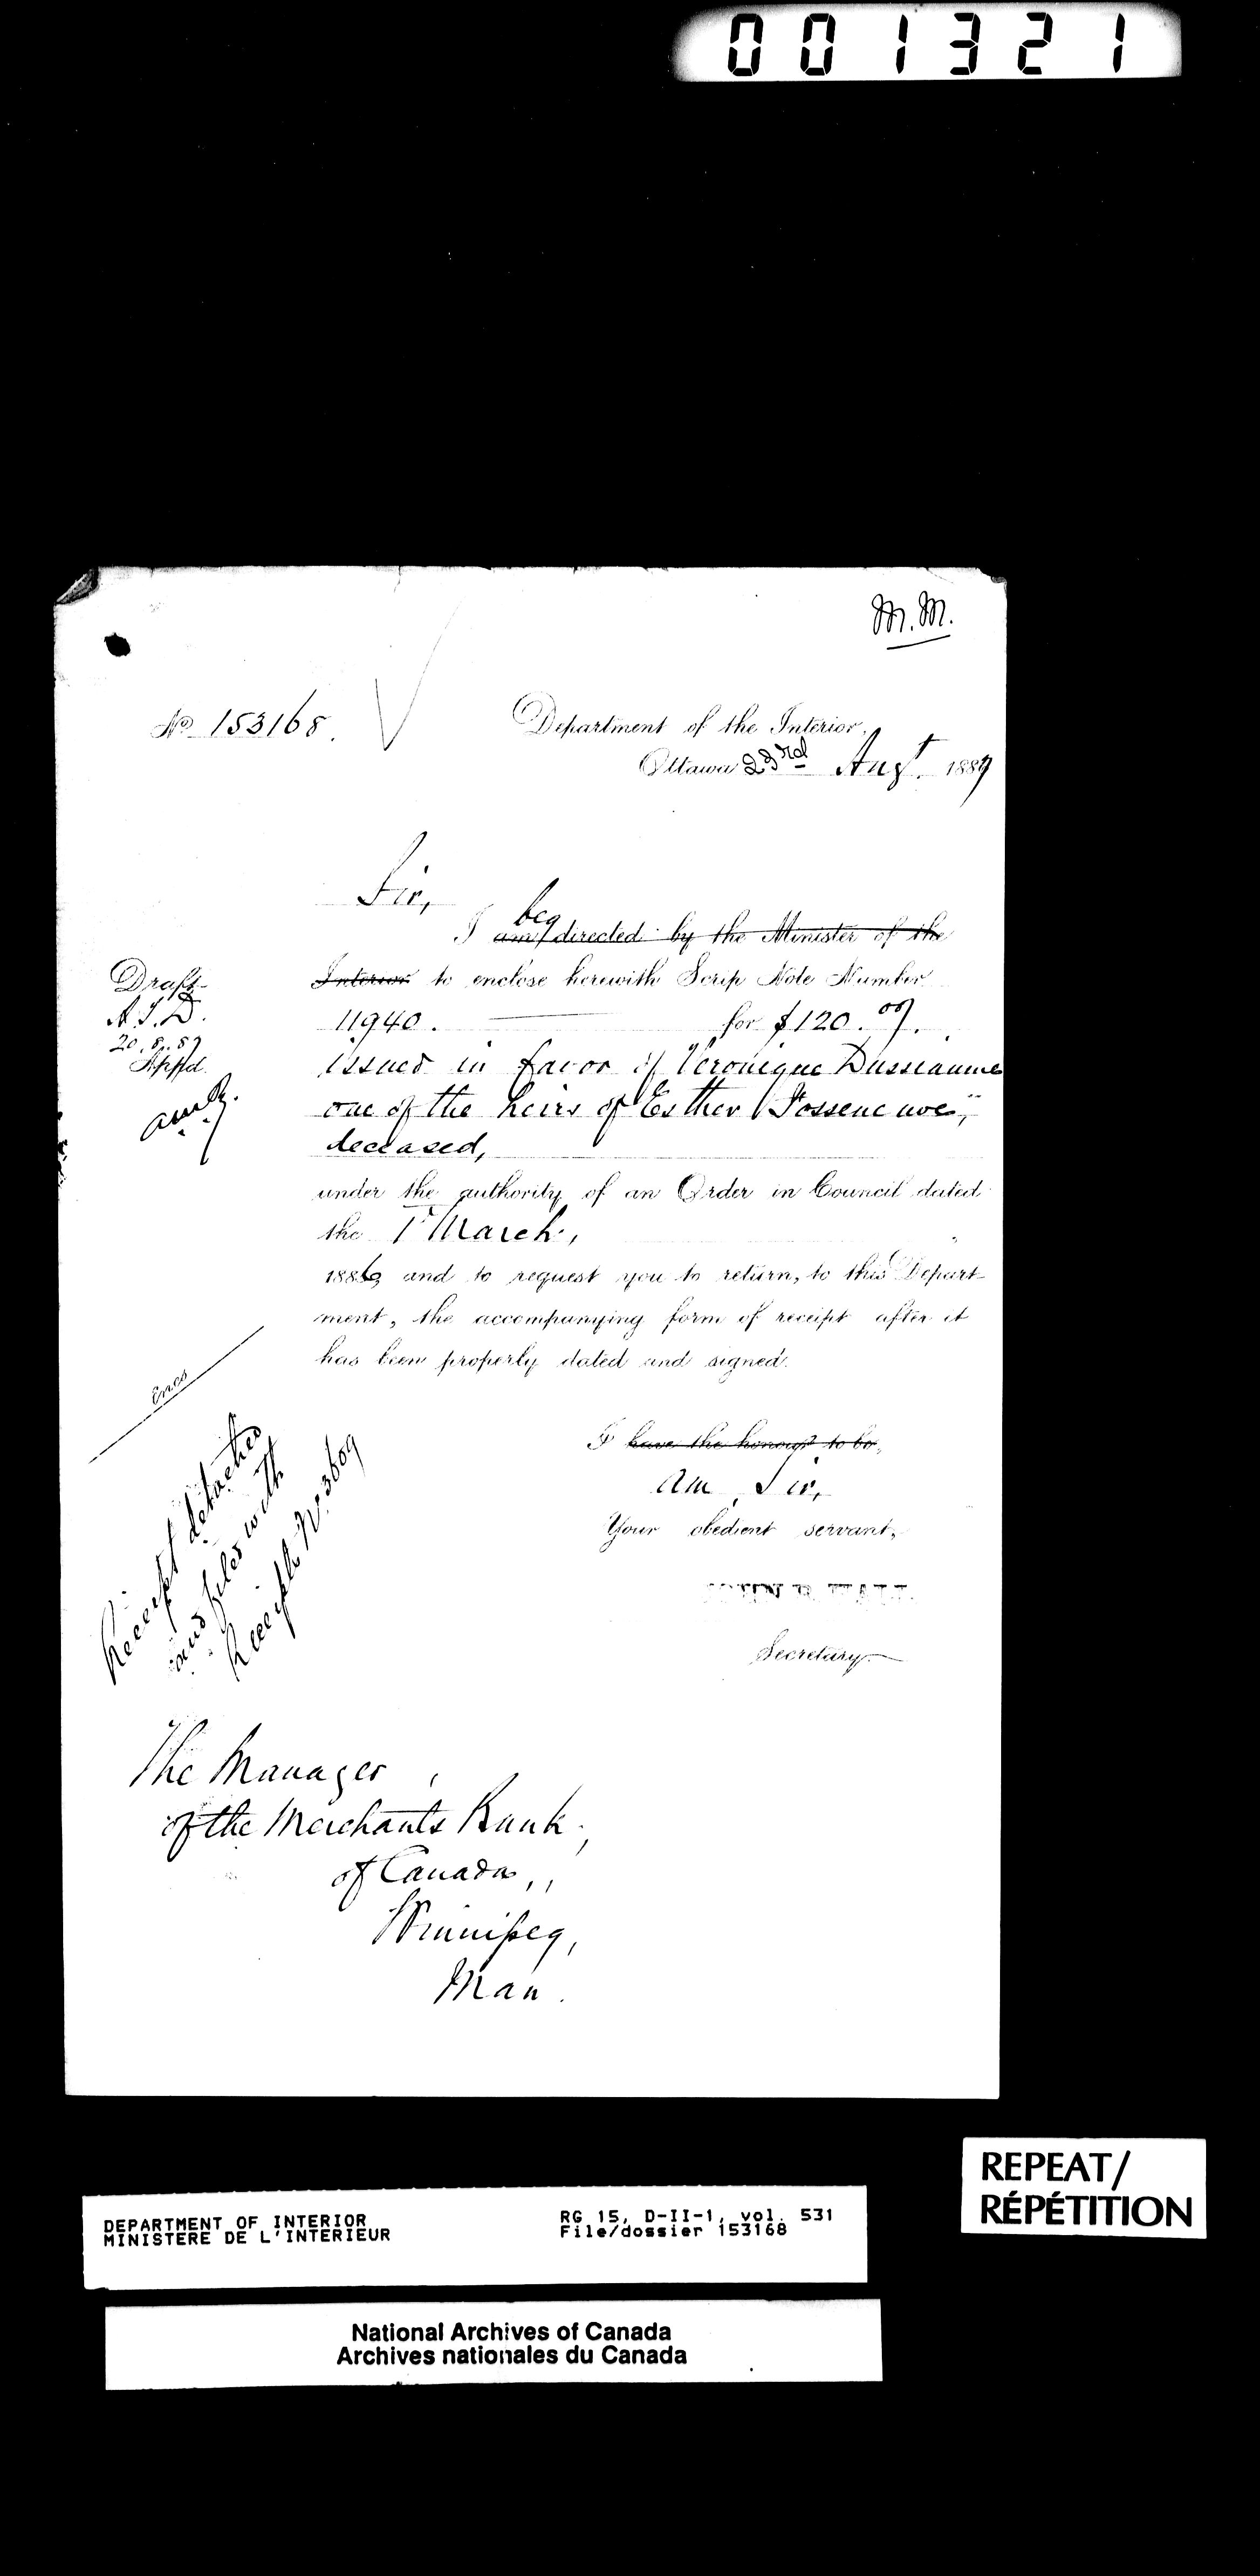 001321
M. M.
No 153168.
Department of the Interior,
Ottawa 23rd Augt. 1889
Sir,
beg
I am directed by the Minister of the
Interior to enclose herewith Scrip Note Number
11940. for $120.00.
issued in favor of Veronique Dusseaume
one of the heirs of Esther
deceased,
under the authority of an Order in Council dated
the 1st March,
1886, and to request you to return, to this Depart-
ment, the accompanying form of receipt after it
has been properly dated and signed.
Draft
20.8.89
App'd.
Encs
Receipt detached
and filed with
Receipt No. 3609
I have the honour to be,
am, Sir,
Your obedient servant,
Secretary.
The Manager
of the Merchants Bank
of Canada,
Winnipeg,
Man.
REPEAT/
RÉPÉTITION
DEPARTMENT OF INTERIOR
MINISTERE DE L'INTERIEUR
RG 15, D-II-1, vol. 531
File/dossier 153168
National Archives of Canada
Archives nationales du Canada